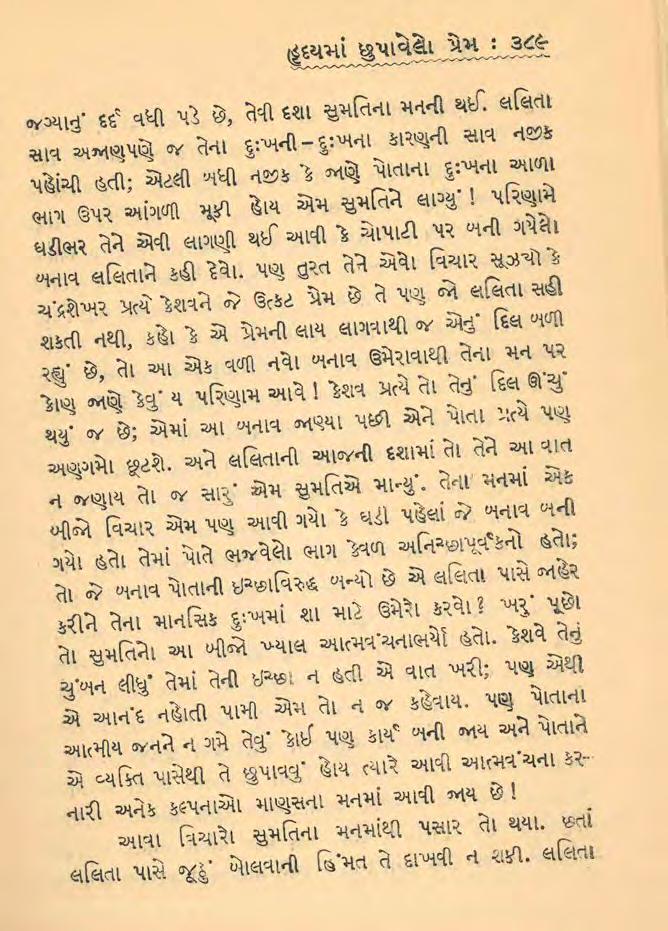 હૃદયમાં છુપાવેલો પ્રેમ : ૩૮૯
જગ્યાનું દર્દ વધી પડે છે, તેવી દશા સુમતિના મનની થઈ. લલિતા
સાવ અજાણપણે જ તેના દુઃખની – દુઃખના કારણની સાવ નજીક
પહોંચી હતી; એટલી બધી નજીક કે જાણે પોતાના દુઃખના આળા
ભાગ ઉપર આંગળી મૂકી હોય એમ સુમતિને લાગ્યું ! પરિણામે
ઘડીભર તેને એવી લાગણી થઈ આવી કે ચોપાટી પર બની ગયેલો
બનાવ લલિતાને કહી દેવો. પણ તુરત તેને એવો વિચાર સૂઝયો કે
ચંદ્રશેખર પ્રત્યે કેશવને જે ઉત્કટ પ્રેમ છે તે પણ જો લલિતા સહી
શકતી નથી, કહો કે એ પ્રેમની લાય લાગવાથી જ એનું દિલ બળી
રહ્યું છે, તો આ એક વળી નવો બનાવ ઉમેરાવાથી તેના મન પર
કોણ જાણે કેવું ય પરિણામ આવે ! કેશવ પ્રત્યે તો તેનું દિલ ઊંચું
થયું જ છે; એમાં આ બનાવ જાણ્યા પછી એને પોતા પ્રત્યે પણ
અણગમો છૂટશે. અને લલિતાની આજની દશામાં તો તેને આ વાત
ન જણાય તો જ સારું એમ સુમતિએ માન્યું. તેના મનમાં એક
બીજો વિચાર એમ પણ આવી ગયો કે ઘડી પહેલાં જે બનાવ બની
ગયો હતો તેમાં પોતે ભજવેલો ભાગ કેવળ અનિચ્છાપૂર્વકનો હતો;
તો જે બનાવ પોતાની ઇચ્છાવિરુદ્ધ બન્યો છે એ લલિતા પાસે જાહેર
કરીને તેના માનસિક દુઃખમાં શા માટે ઉમેરો કરવો? ખરું પૂછો
તો સુમતિનો આ બીજો ખ્યાલ આત્મવંચનાભર્યો હતો. કેશવે તેનું
ચુંબન લીધું તેમાં તેની ઇચ્છા ન હતી એ વાત ખરી; પણ એથી
એ આનંદ નહોતી પામી એમ તો ન જ કહેવાય. પણ પોતાના
આત્મીય જનને ન ગમે તેવું કોઈ પણ કાર્ય બની જાય અને પોતાને
એ વ્યક્તિ પાસેથી તે છુપાવવું હોય ત્યારે આવી આત્મવંચના કર-
નારી અનેક કલ્પનાઓ માણસના મનમાં આવી જાય છે !
આવા વિચારો સુમતિના મનમાંથી પસાર તો થયા. છતાં
લલિતા પાસે જૂઠું બોલવાની હિંમત તે દાખવી ન શકી. લલિતા